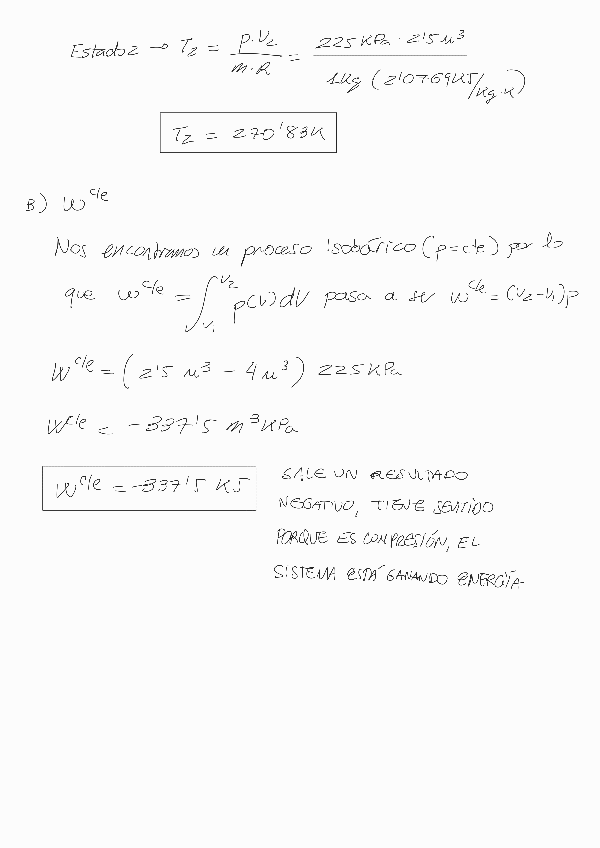 Estado 2 → T2 = p·V2 / m·R = 225 KPa · 2'5 m³ / 1Kg (2'0769 KJ/Kg·K)
T2 = 270'83K
B) W^c/e
Nos encontramos un proceso isobárico (p=cte) por lo
que W^c/e = ∫V1^V2 p(V)dV pasa a ser W^c/e = (V2-V1)p
W^c/e = (2'5 m³ - 4 m³) 225 KPa
W^c/e = -337'5 m³ KPa
W^c/e = -337'5 KJ
SALE UN RESULTADO
NEGATIVO, TIENE SENTIDO
PORQUE ES COMPRESIÓN, EL
SISTEMA ESTÁ GANANDO ENERGÍA